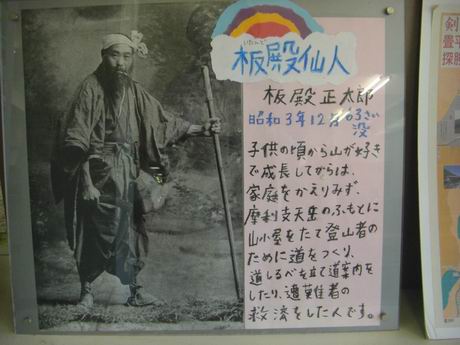 いたんど
板殿仙人
板殿正太郎
昭和3年12月63さい
没
子供の頃から山が好き
で成長してからは、
家庭をかえりみず、
摩利支天岳のふもとに
山小屋をたて登山者の
ために道をつくり、
道しるべを立て道案内を
したり、遭難者の
救済をした人です。
剣
畳平
探勝